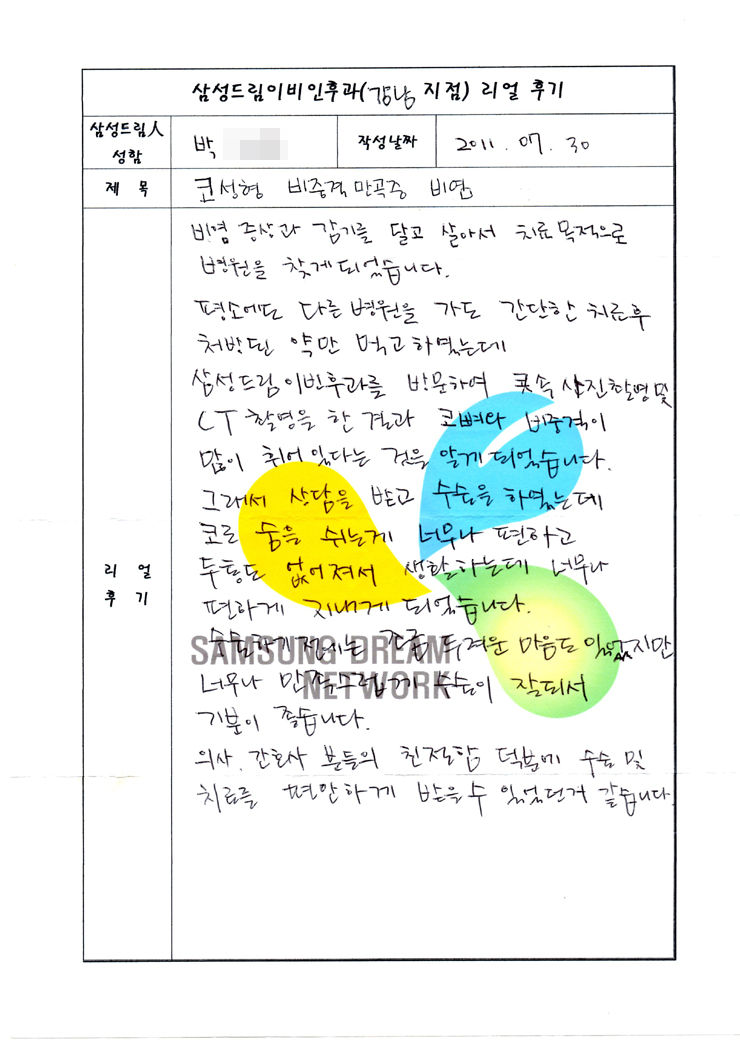 삼성드림이비인후과(강남 지점) 리얼 후기
삼성드림人 성함
박
작성날짜
2011. 07. 30
제 목
코성형 비중격만곡증 비염
리 얼 후 기
비염 증상과 감기를 달고 살아서 치료목적으로
병원을 찾게되었습니다.
평소에도 다른병원을 가도 간단한 치료후
처방된 약만 먹고 하였는데
삼성드림이빈후과를 방문하여 콧속 사진촬영및
CT 촬영을 한 결과 코뼈와 비중격이
많이 휘어있다는 것을 알게되었습니다.
그래서 상담을 받고 수술을 하였는데
코로 숨을 쉬는게 너무나 편하고
두통도 없어져서 생활하는데 너무나
편하게 지내게 되었습니다.
수술하기전에는 조금 두려운 마음도 있었지만
너무나 만족스럽게 수술이 잘되서
기분이 좋습니다.
의사, 간호사 분들의 친절함 덕분에 수술 및
치료를 편안하게 받을수 있었던거 같습니다.
SAMSUNG DREAM
NETWORK